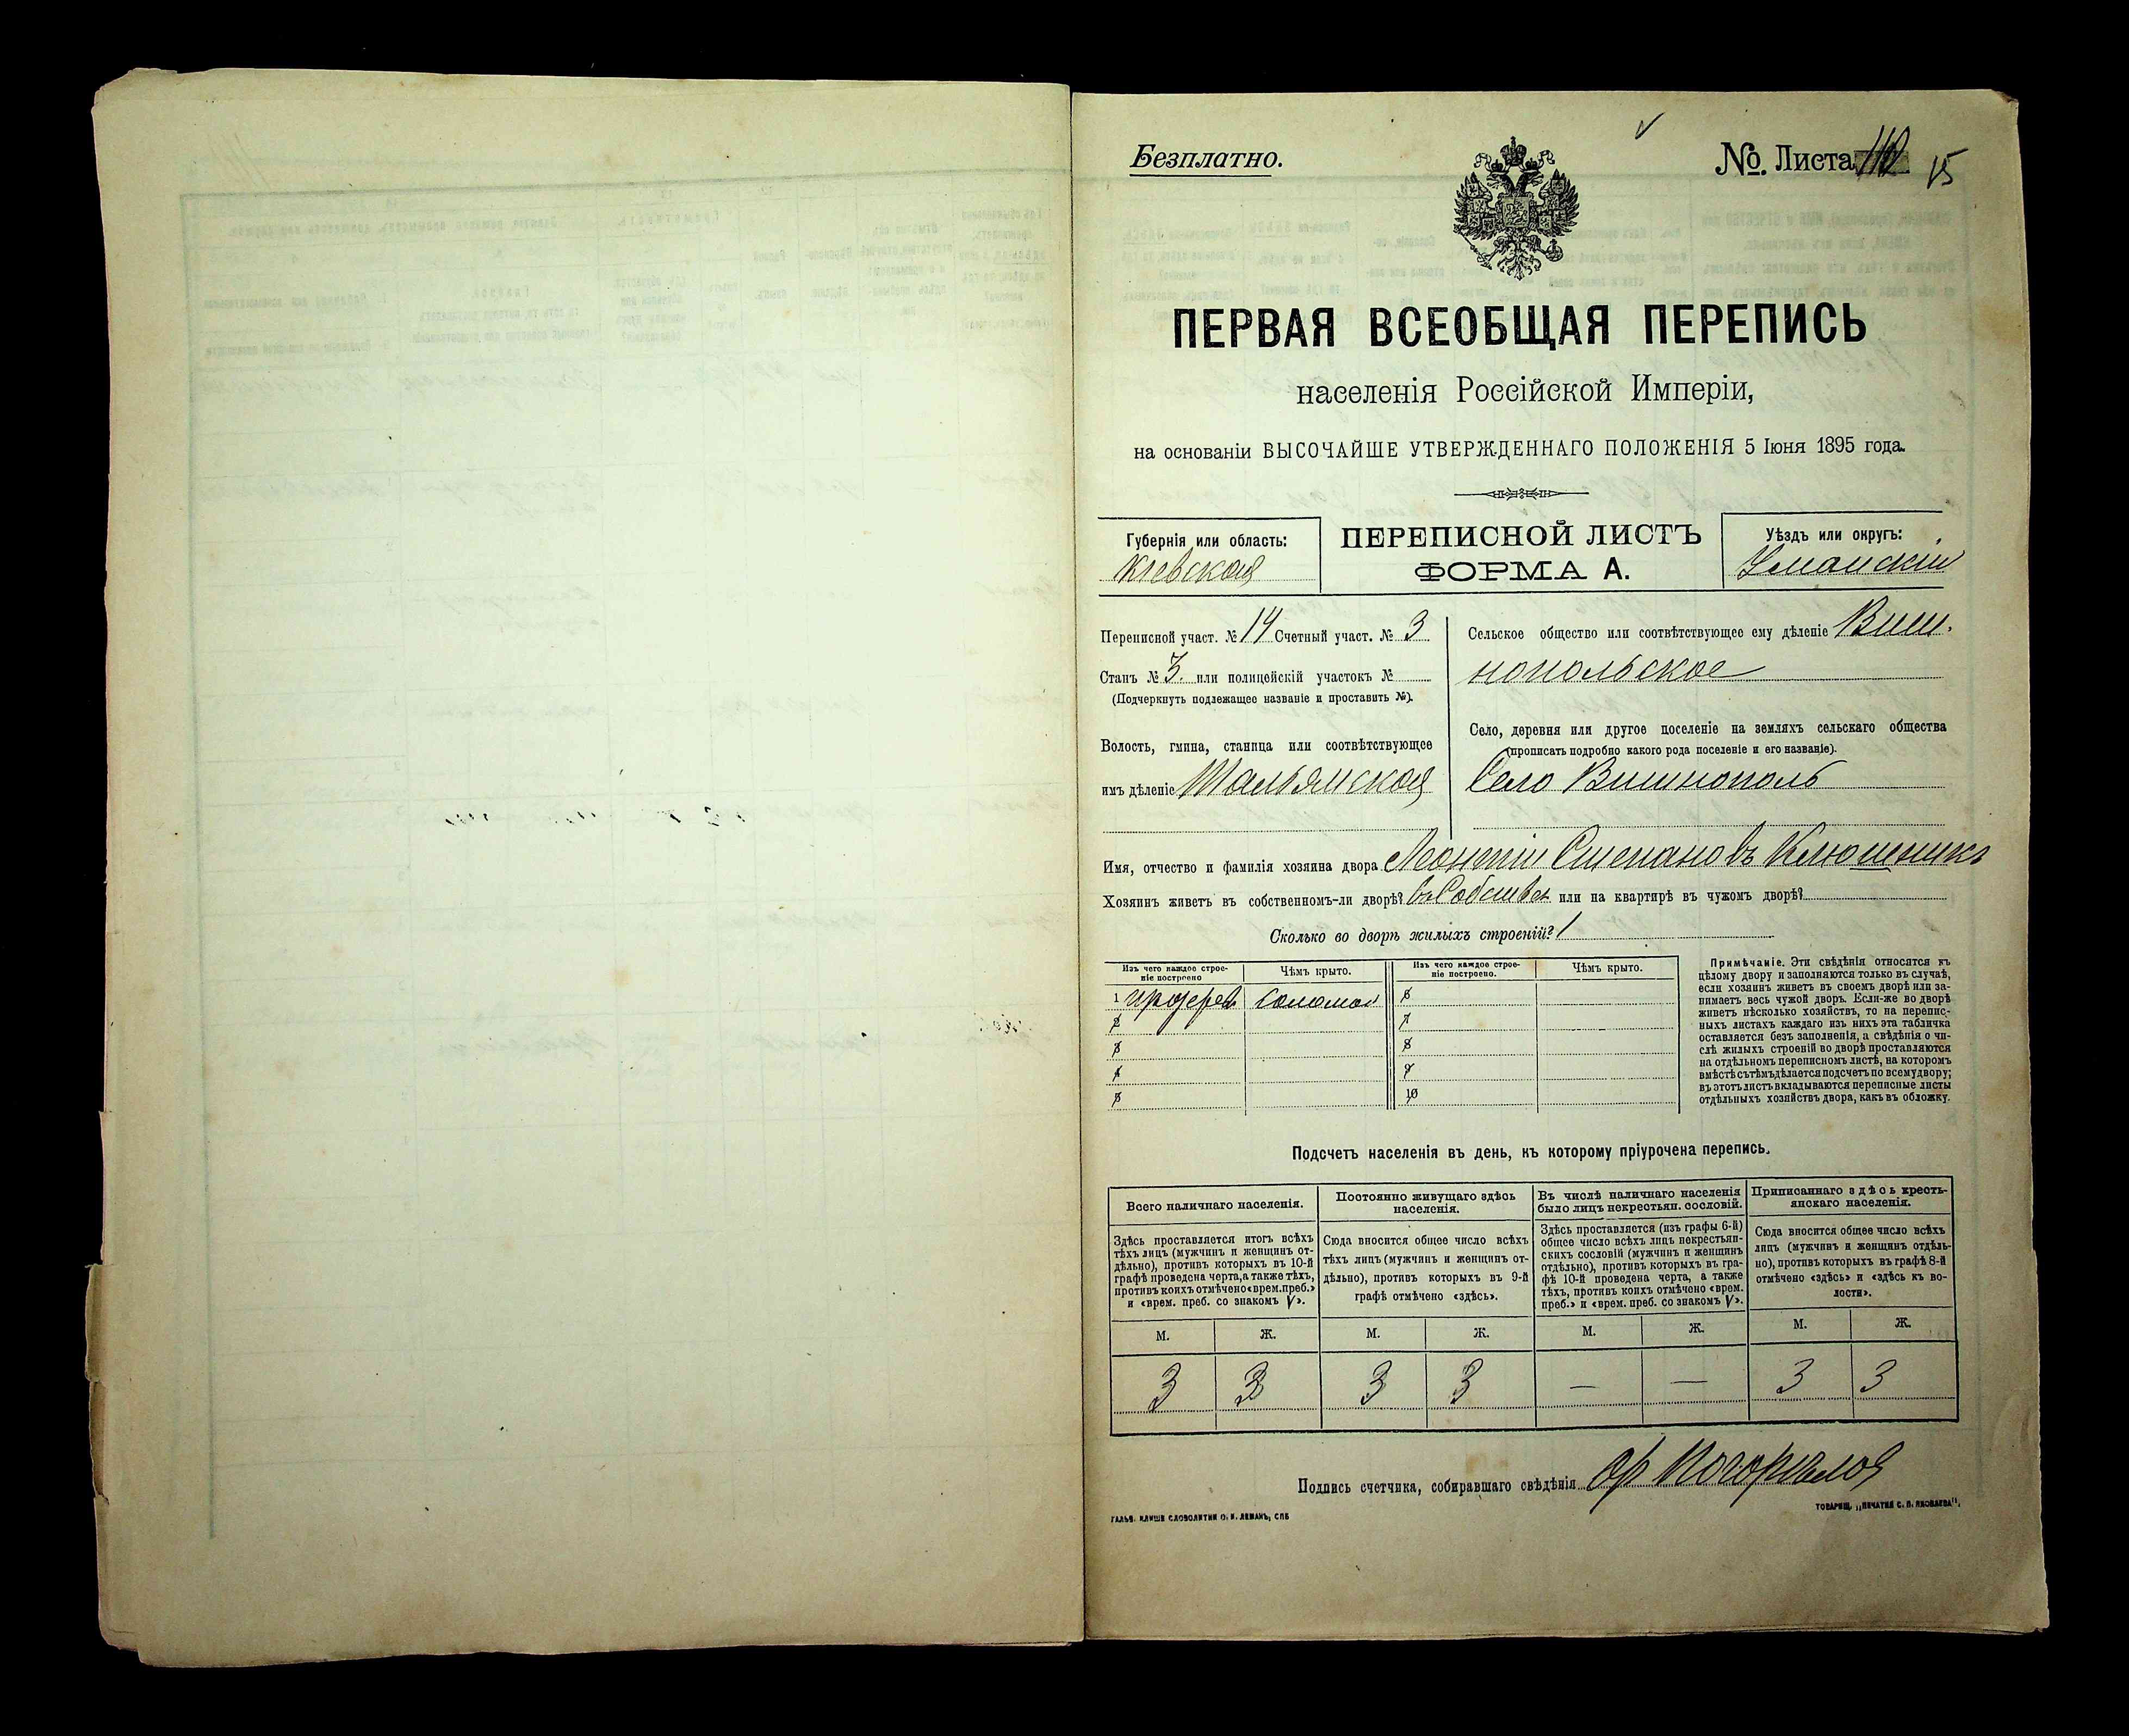 Безплатно.
№. Листа 15
ПЕРВАЯ ВСЕОБЩАЯ ПЕРЕПИСЬ
населенія Россійской Имперіи,
на основаніи ВЫСОЧАЙШЕ УТВЕРЖДЕННАГО ПОЛОЖЕНІЯ 5 Іюня 1895 года.
Губернія или область:
Кіевская
ПЕРЕПИСНОЙ ЛИСТЪ
ФОРМА А.
Уѣздъ или округъ:
Уманскій
Переписной участ. № 14 Счетный участ. № 3
Станъ № 3. или полицейскій участокъ №
(Подчеркнуть подлежащее названіе и проставить №).
Волость, гмина, станица или соотвѣтствующее
имъ дѣленіе Тальянская
Сельское общество или соотвѣтствующее ему дѣленіе Виш-
нопольское
Село, деревня или другое поселеніе на земляхъ сельскаго общества
(прописать подробно какого рода поселеніе и его названіе).
Село Вишнополь
Имя, отчество и фамилія хозяина двора Леонтій Степановъ Клюшникъ
Хозяинъ живетъ въ собственномъ-ли дворѣ? въ Собствен или на квартирѣ въ чужомъ дворѣ?
Сколько во дворѣ жилыхъ строеній? 1
Изъ чего каждое строе-
ніе построено
Чѣмъ крыто.
Изъ чего каждое строе-
ніе построено.
Чѣмъ крыто.
1 соломой 6
2 7
3 8
4 9
5 10
Примѣчаніе. Эти свѣдѣнія относятся къ
цѣлому двору и заполняются только въ случаѣ,
если хозяинъ живетъ въ своемъ дворѣ или за-
нимаетъ весь чужой дворъ. Если-же во дворѣ
живетъ нѣсколько хозяйствъ, то на перепис-
ныхъ листахъ каждаго изъ нихъ эта табличка
оставляется безъ заполненія, а свѣдѣнія о чи-
слѣ жилыхъ строеній во дворѣ проставляются
на отдѣльномъ переписномъ листѣ, на которомъ
вмѣстѣ съ тѣмъ дѣлается подсчетъ по всему двору;
въ этотъ листъ вкладываются переписные листы
отдѣльныхъ хозяйствъ двора, какъ въ обложку.
Подсчетъ населенія въ день, къ которому пріурочена перепись.
Всего наличнаго населенія.
Здѣсь проставляется итогъ всѣхъ
тѣхъ лицъ (мужчинъ и женщинъ от-
дѣльно), противъ которыхъ въ 10-й
графѣ проведена черта, а также тѣхъ,
противъ коихъ отмѣчено «врем. преб.»
и «врем. преб. со знакомъ V».
Постоянно живущаго здѣсь
населенія.
Сюда вносится общее число всѣхъ
тѣхъ лицъ (мужчинъ и женщинъ от-
дѣльно), противъ которыхъ въ 9-й
графѣ отмѣчено «здѣсь».
Въ числѣ наличнаго населенія
было лицъ некрестьян. сословій.
Здѣсь проставляется (изъ графы 6-й)
общее число всѣхъ лицъ некрестьян-
скихъ сословій (мужчинъ и женщинъ
отдѣльно), противъ которыхъ въ гра-
фѣ 10-й проведена черта, а также
тѣхъ, противъ коихъ отмѣчено «врем.
преб.» и «врем. преб. со знакомъ V».
Приписаннаго здѣсь кресть-
янскаго населенія.
Сюда вносится общее число всѣхъ
лицъ (мужчинъ и женщинъ отдѣль-
но), противъ которыхъ въ графѣ 8-й
отмѣчено «здѣсь» и «здѣсь къ во-
лости».
М. Ж. М. Ж. М. Ж. М. Ж.
3 3 3 3 — — 3 3
Подпись счетчика, собиравшаго свѣдѣнія
ГАЛЬВ. КЛИШЕ СЛОВОЛИТНИ О. И. ЛЕМАНЪ, СПБ
ТОВАРИЩ. „ПЕЧАТНЯ С. П. ЯКОВЛЕВА".